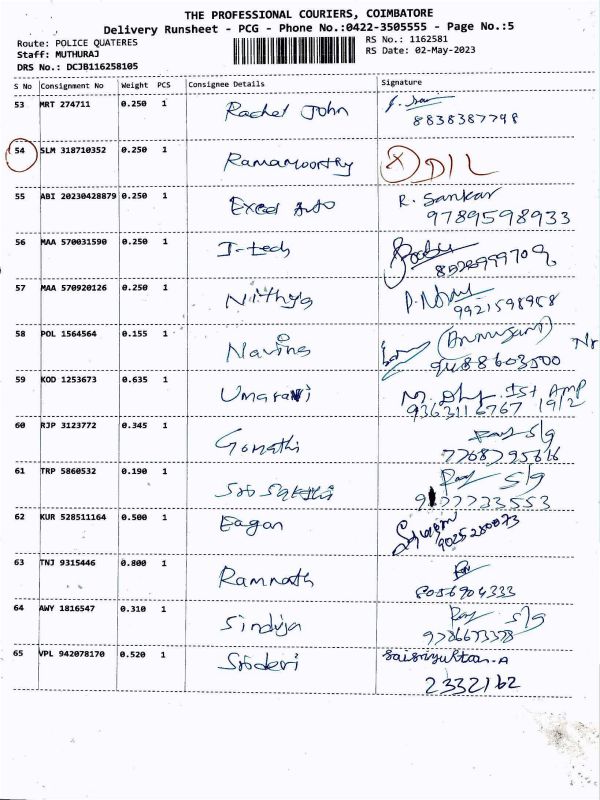 THE PROFESSIONAL COURIERS, COIMBATORE
Delivery Runsheet - PCG - Phone No.:0422-3505555 - Page No.:5
Route: POLICE QUATERES RS No.: 1162581
Staff: MUTHURAJ RS Date: 02-May-2023
DRS No.: DCJB116258105
S No Consignment No Weight PCS Consignee Details Signature
53 MRT 274711 0.250 1 Rachel John
8838387798
54 SLM 318710352 0.250 1 Ramamoorthy X D/L
55 ABI 20230428879 0.250 1 Excel Auto R. Sankar
9789598933
56 MAA 570031590 0.250 1 I-tech
57 MAA 570920126 0.250 1 Nithya
9921598958
58 POL 1564564 0.155 1 Navina
9488603500
59 KOD 1253673 0.635 1 Umaravi
9363116767 19/2
60 RJP 3123772 0.345 1 Gomathi S/g
7768795616
61 TRP 5860532 0.190 1 Sri Sakthi S/g
62 KUR 528511164 0.500 1 Eagan
9025280073
63 TNJ 9315446 0.800 1 Ramnath
8056904333
64 AWY 1816547 0.310 1 Sinduja S/g
65 VPL 942078170 0.520 1 Sridevi
2332162